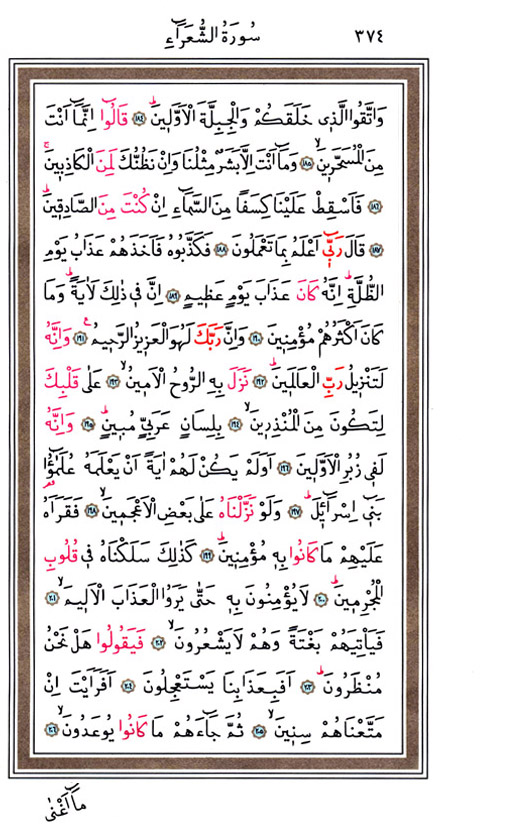 ٣٧٤ سُورَةُ الشُّعَرَاءِ
وَاتَّقُوا الَّذ۪ي خَلَقَكُمْ وَالْجِبِلَّةَ الْاَوَّل۪ينَۜ ﴿١٨٤﴾ قَالُٓوا اِنَّمَٓا اَنْتَ
مِنَ الْمُسَحَّر۪ينَۙ ﴿١٨٥﴾ وَمَٓا اَنْتَ اِلَّا بَشَرٌ مِثْلُنَا وَاِنْ نَظُنُّكَ لَمِنَ الْكَاذِب۪ينَۚ
﴿١٨٦﴾ فَاَسْقِطْ عَلَيْنَا كِسَفًا مِنَ السَّمَٓاءِ اِنْ كُنْتَ مِنَ الصَّادِق۪ينَۜ
﴿١٨٧﴾ قَالَ رَبّ۪ٓي اَعْلَمُ بِمَا تَعْمَلُونَ ﴿١٨٨﴾ فَكَذَّبُوهُ فَاَخَذَهُمْ عَذَابُ يَوْمِ
الظُّلَّةِۜ اِنَّهُ كَانَ عَذَابَ يَوْمٍ عَظ۪يمٍ ﴿١٨٩﴾ اِنَّ ف۪ي ذٰلِكَ لَاٰيَةًۜ وَمَا
كَانَ اَكْثَرُهُمْ مُؤْمِن۪ينَ ﴿١٩٠﴾ وَاِنَّ رَبَّكَ لَهُوَ الْعَز۪يزُ الرَّح۪يمُ۟ ﴿١٩١﴾ وَاِنَّهُ
لَتَنْز۪يلُ رَبِّ الْعَالَم۪ينَۜ ﴿١٩٢﴾ نَزَلَ بِهِ الرُّوحُ الْاَم۪ينُۙ ﴿١٩٣﴾ عَلٰى قَلْبِكَ
لِتَكُونَ مِنَ الْمُنْذِر۪ينَۙ ﴿١٩٤﴾ بِلِسَانٍ عَرَبِيٍّ مُب۪ينٍۜ ﴿١٩٥﴾ وَاِنَّهُ
لَف۪ي زُبُرِ الْاَوَّل۪ينَ ﴿١٩٦﴾ اَوَلَمْ يَكُنْ لَهُمْ اٰيَةً اَنْ يَعْلَمَهُ عُلَمٰٓؤُ۬ا
بَن۪ٓي اِسْرَٓائ۪لَۜ ﴿١٩٧﴾ وَلَوْ نَزَّلْنَاهُ عَلٰى بَعْضِ الْاَعْجَم۪ينَۙ ﴿١٩٨﴾ فَقَرَاَهُ
عَلَيْهِمْ مَا كَانُوا بِه۪ مُؤْمِن۪ينَۜ ﴿١٩٩﴾ كَذٰلِكَ سَلَكْنَاهُ ف۪ي قُلُوبِ
الْمُجْرِم۪ينَۜ ﴿٢٠٠﴾ لَا يُؤْمِنُونَ بِه۪ حَتّٰى يَرَوُا الْعَذَابَ الْاَل۪يمَۙ ﴿٢٠١﴾
فَيَاْتِيَهُمْ بَغْتَةً وَهُمْ لَا يَشْعُرُونَۙ ﴿٢٠٢﴾ فَيَقُولُوا هَلْ نَحْنُ
مُنْظَرُونَۜ ﴿٢٠٣﴾ اَفَبِعَذَابِنَا يَسْتَعْجِلُونَ ﴿٢٠٤﴾ اَفَرَاَيْتَ اِنْ
مَتَّعْنَاهُمْ سِن۪ينَۙ ﴿٢٠٥﴾ ثُمَّ جَٓاءَهُمْ مَا كَانُوا يُوعَدُونَۙ ﴿٢٠٦﴾
مَٓا اَغْنٰى